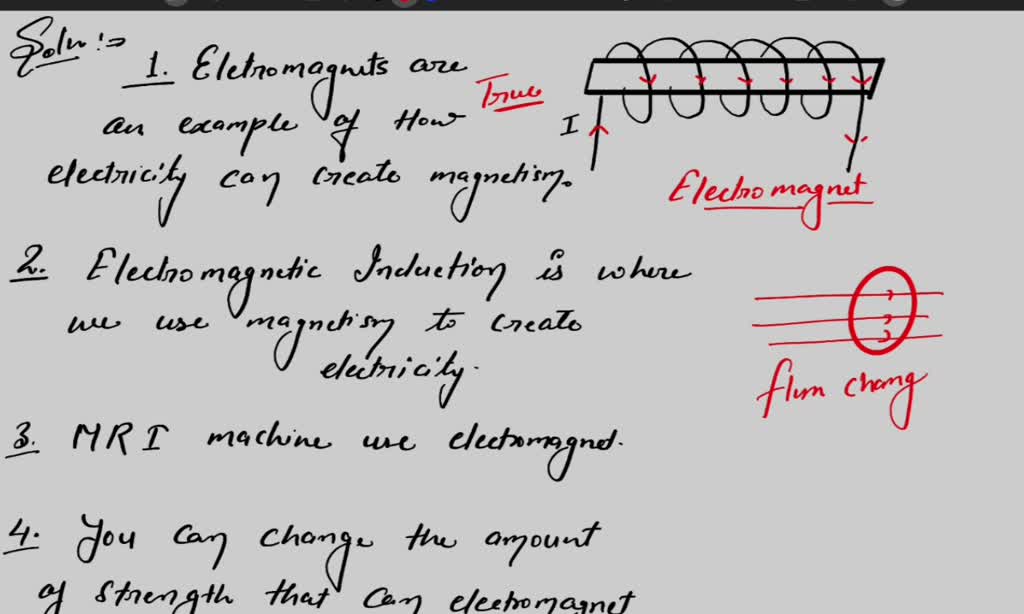 Soln :->
1. Eletromagnets are
an example of How
electricity can create magnetism.
True
I
Electromagnet
2. Electromagnetic Induction is where
we use magnetism to create
electricity.
flux chang
3. MRI machine use electromagnet.
4. You can change the amount
of strength that can electromagnet